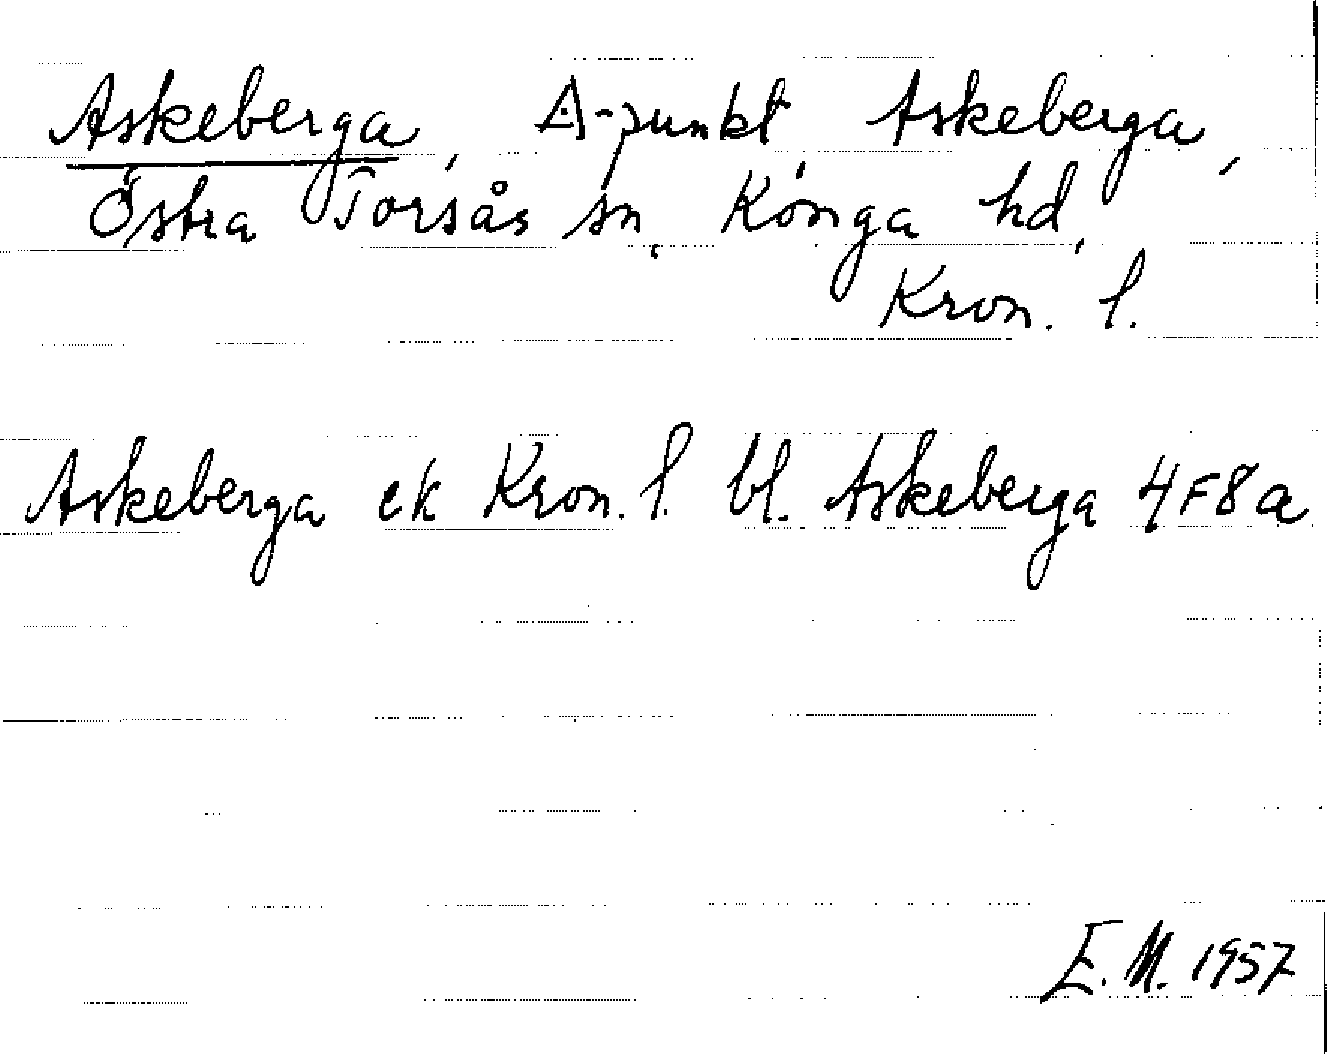 Askeberga, △-punkt Askeberga,
Östra Torsås sn, Konga hd,
Kron. l.
Askeberga ek Kron. l. bl. Askeberga 4F8a
E.M. 1957